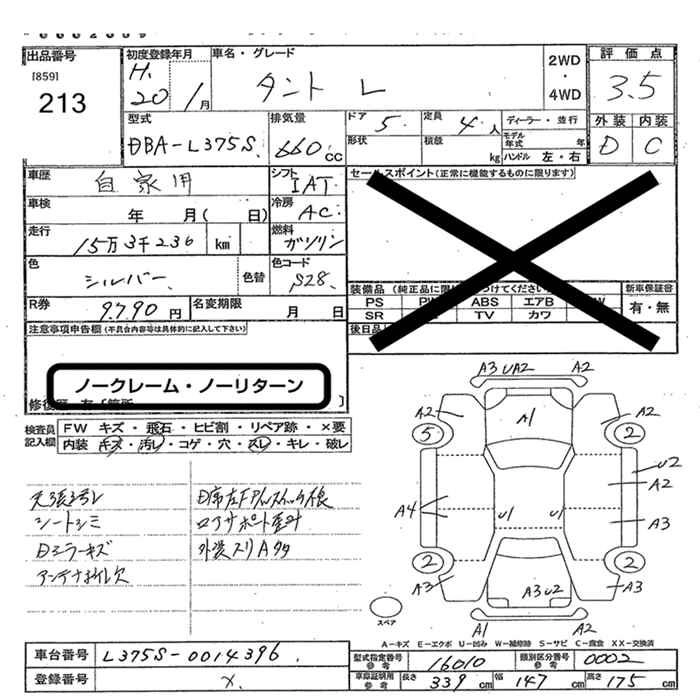 出品番号
[859]
213
初度登録年月
H.
20 / 1月
車名・グレード
タント L
2WD
・
4WD
評価点
3.5
外装 内装
D C
型式
DBA-L375S
排気量
660 cc
ドア
5
定員
4人
形状
積載
kg
ディーラー・並行
モデル年式 年
ハンドル 左・右
車歴
自家用
シフト
IAT
車検
年 月( 日)
冷房
AC
走行
15万3千236 km
燃料
ガソリン
色
シルバー
色替
色コード
S28
R券
9790円
名変期限
月 日
セールスポイント(正常に機能するものに限ります)
装備品
PS
ABS
エアB
SR
TV
カワ
新車保証書
有・無
後日品
注意事項申告欄(不具合内容等は具体的に記入して下さい)
ノークレーム・ノーリターン
検査員
記入欄
FW キズ・飛石・ヒビ割・リペア跡・×要
内装 キズ・汚レ・コゲ・穴・スレ・キレ・破レ
天張汚レ
シートシミ
Dミラーキズ
A3 UA2 A2
A2
A1
A2
5
2
U2
A2
A4
U1
U1
A3
2
2
A3
A3U2
A3
スペア
A1
A2
A-キズ E-エクボ U-凹み W-補修跡 S-サビ C-腐食 XX-交換済
車台番号
L375S-0014396
登録番号
×
型式指定番号
参考
16010
類別区分番号
参考
0002
車庫証明用
参考
長さ 339 cm
幅 147 cm
高さ 175 cm